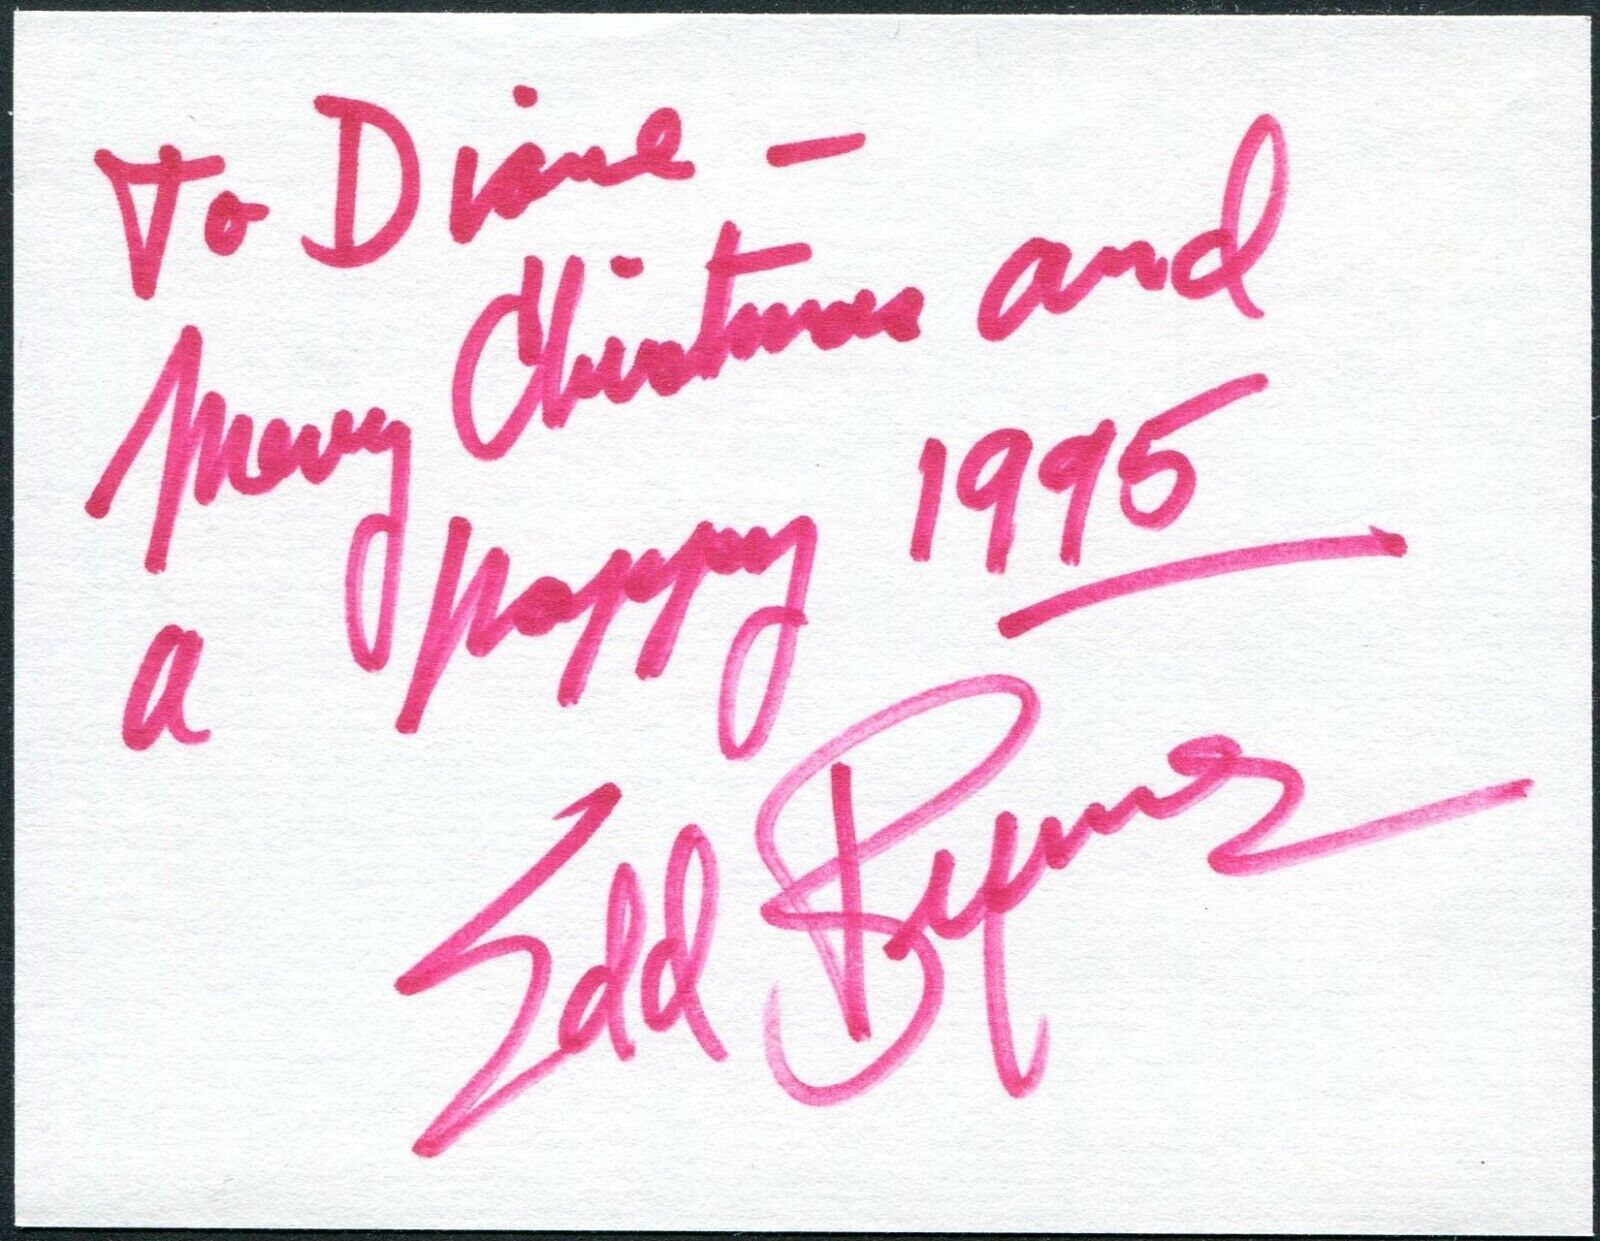 To Diane —
Merry Christmas and
a Happy 1995
Edd Byrnes